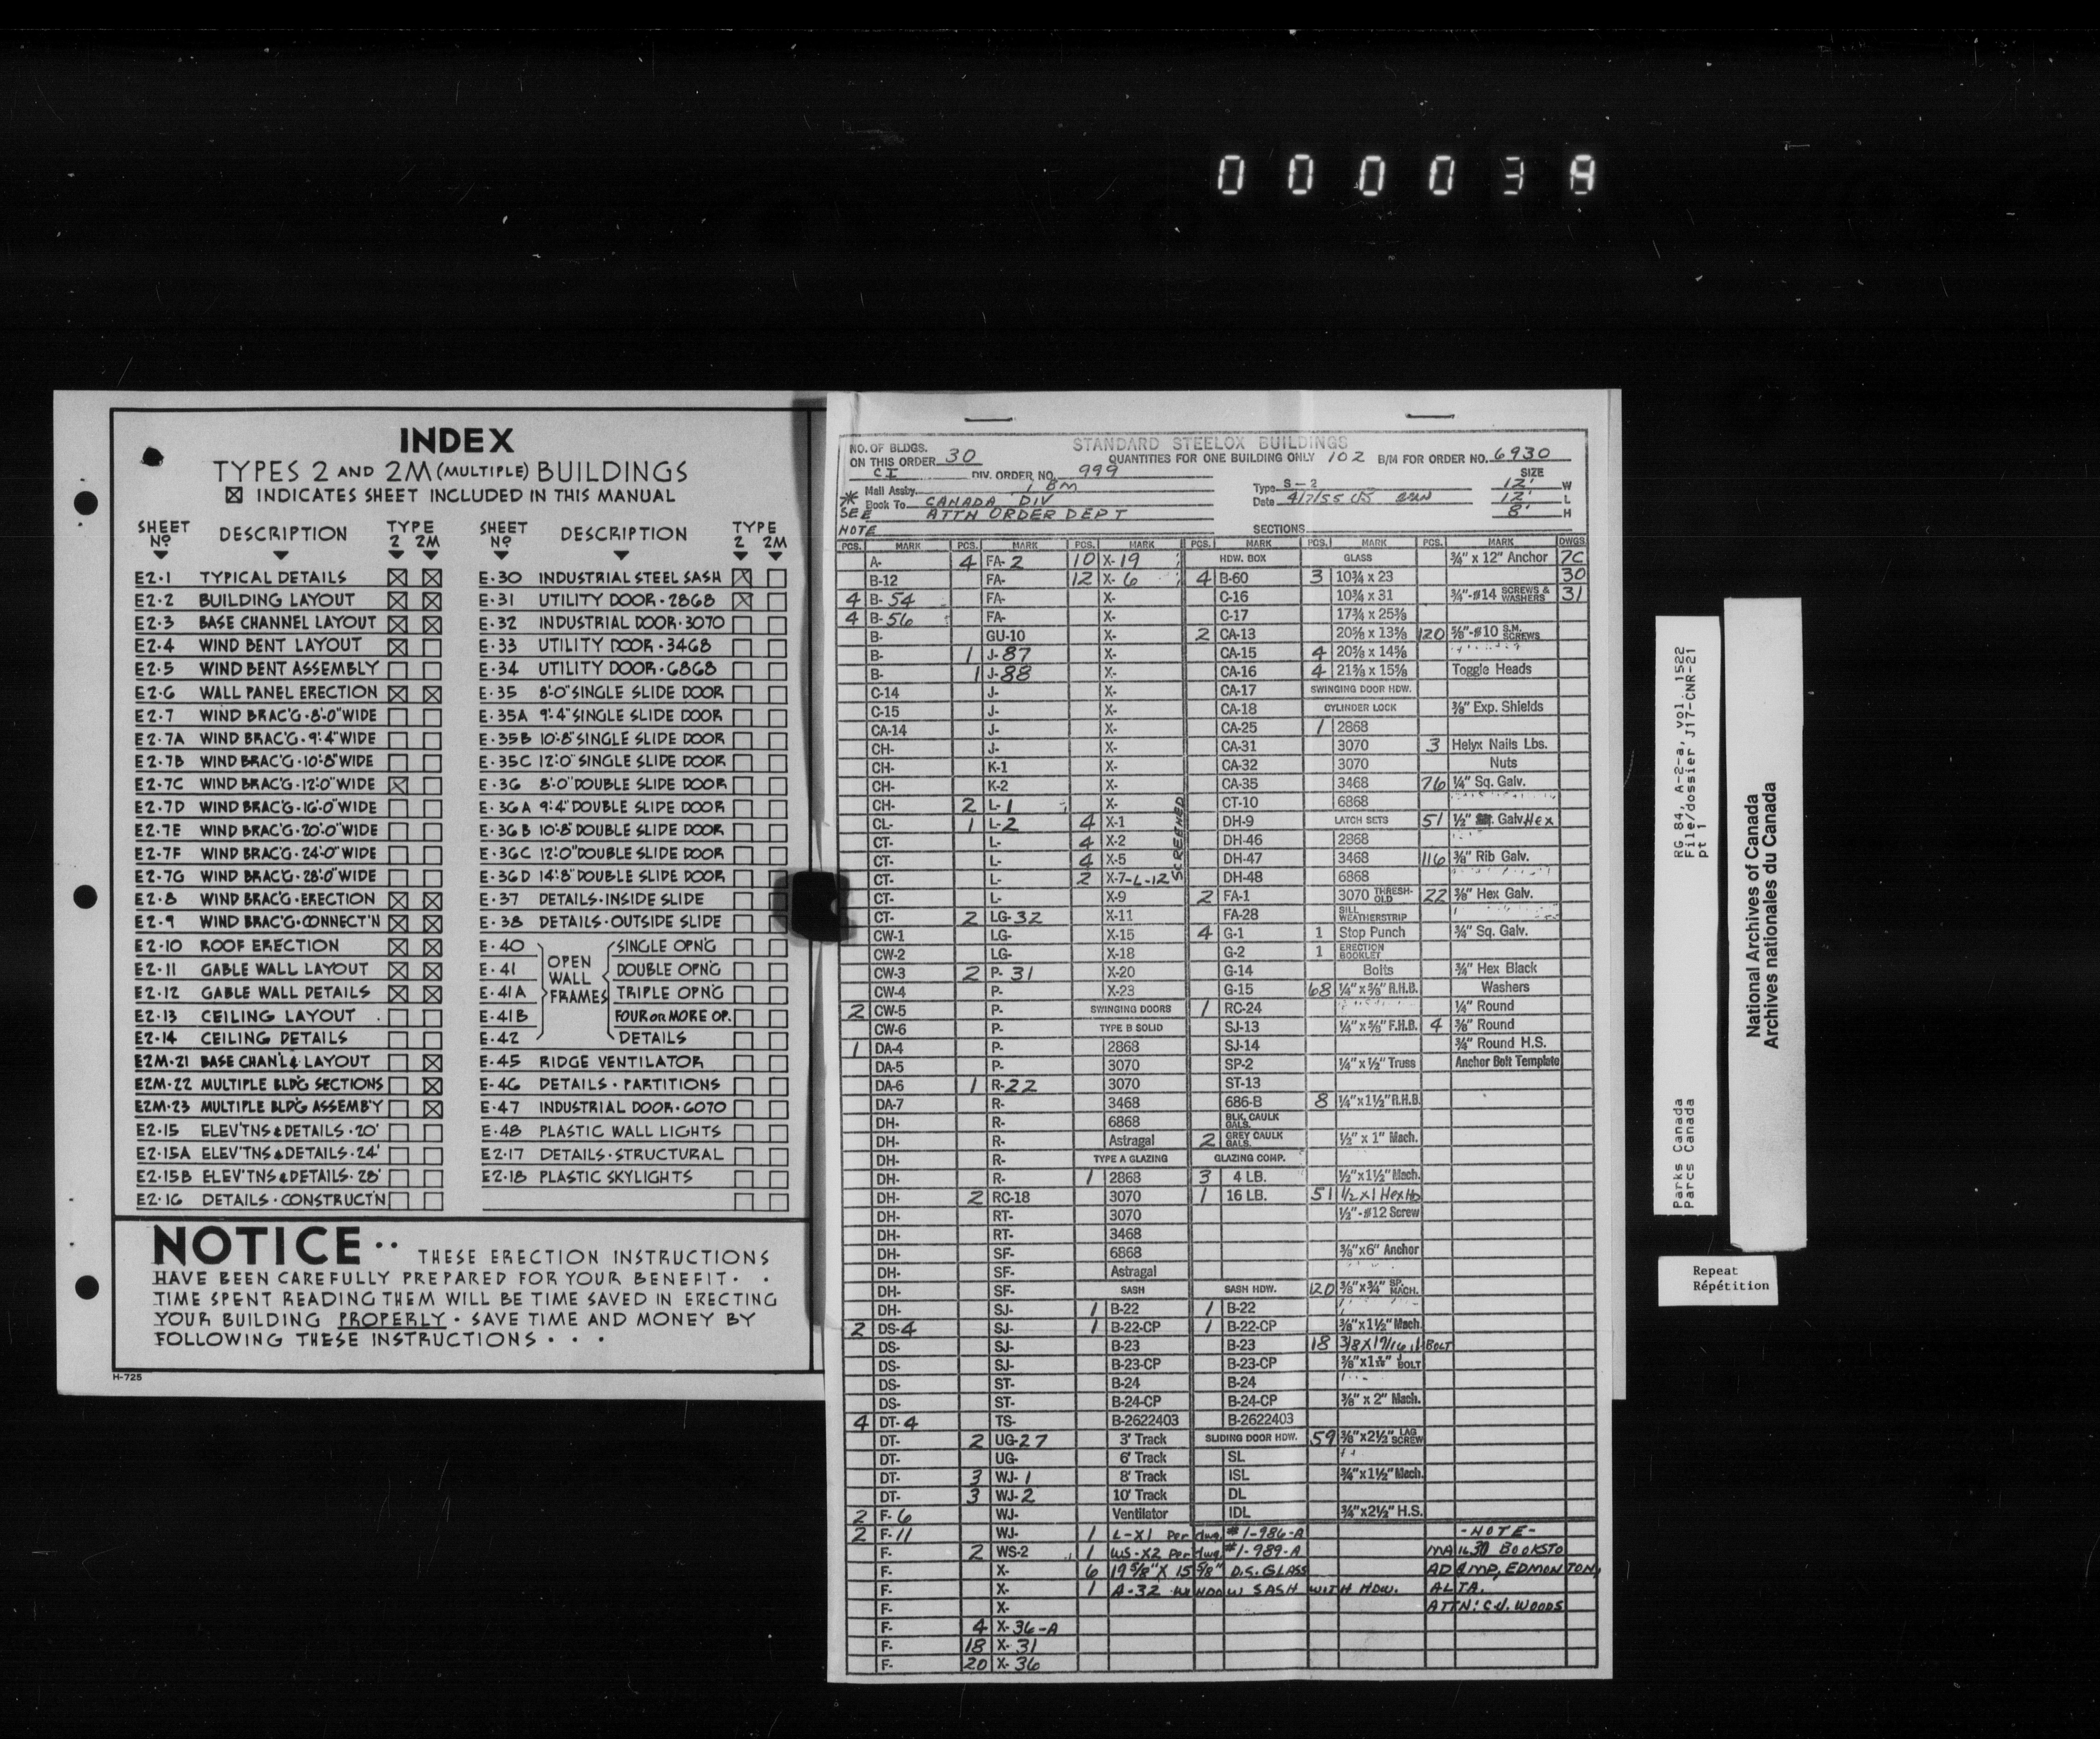 0 0 0 0 3 A
INDEX
TYPES 2 AND 2M (MULTIPLE) BUILDINGS
☒ INDICATES SHEET INCLUDED IN THIS MANUAL
SHEET Nº DESCRIPTION TYPE 2 2M
E2·1 TYPICAL DETAILS ☒ ☒
E2·2 BUILDING LAYOUT ☒ ☒
E2·3 BASE CHANNEL LAYOUT ☒ ☒
E2·4 WIND BENT LAYOUT ☒ ☐
E2·5 WIND BENT ASSEMBLY ☐ ☐
E2·6 WALL PANEL ERECTION ☒ ☒
E2·7 WIND BRAC'G·8'·0" WIDE ☐ ☐
E2·7A WIND BRAC'G·9'·4" WIDE ☐ ☐
E2·7B WIND BRAC'G·10'·8" WIDE ☐ ☐
E2·7C WIND BRAC'G·12'·0" WIDE ☒ ☐
E2·7D WIND BRAC'G·16'·0" WIDE ☐ ☐
E2·7E WIND BRAC'G·20'·0" WIDE ☐ ☐
E2·7F WIND BRAC'G·24'·0" WIDE ☐ ☐
E2·7G WIND BRAC'G·28'·0" WIDE ☐ ☐
E2·8 WIND BRAC'G·ERECTION ☒ ☒
E2·9 WIND BRAC'G·CONNECT'N ☒ ☒
E2·10 ROOF ERECTION ☒ ☒
E2·11 GABLE WALL LAYOUT ☒ ☒
E2·12 GABLE WALL DETAILS ☒ ☒
E2·13 CEILING LAYOUT ☐ ☐
E2·14 CEILING DETAILS ☐ ☐
E2M·21 BASE CHAN'L & LAYOUT ☐ ☒
E2M·22 MULTIPLE BLD'G SECTIONS ☐ ☒
E2M·23 MULTIPLE BLD'G ASSEMB'Y ☐ ☒
E2·15 ELEV'TNS & DETAILS·20' ☐ ☐
E2·15A ELEV'TNS & DETAILS·24' ☐ ☐
E2·15B ELEV'TNS & DETAILS·28' ☐ ☐
E2·16 DETAILS·CONSTRUCT'N ☐ ☐
SHEET Nº DESCRIPTION TYPE 2 2M
E·30 INDUSTRIAL STEEL SASH ☒ ☐
E·31 UTILITY DOOR·2868 ☒ ☐
E·32 INDUSTRIAL DOOR·3070 ☐ ☐
E·33 UTILITY DOOR·3468 ☐ ☐
E·34 UTILITY DOOR·6868 ☐ ☐
E·35 8'·0" SINGLE SLIDE DOOR ☐ ☐
E·35A 9'·4" SINGLE SLIDE DOOR ☐ ☐
E·35B 10'·8" SINGLE SLIDE DOOR ☐ ☐
E·35C 12'·0" SINGLE SLIDE DOOR ☐ ☐
E·36 8'·0" DOUBLE SLIDE DOOR ☐ ☐
E·36A 9'·4" DOUBLE SLIDE DOOR ☐ ☐
E·36B 10'·8" DOUBLE SLIDE DOOR ☐ ☐
E·36C 12'·0" DOUBLE SLIDE DOOR ☐ ☐
E·36D 14'·8" DOUBLE SLIDE DOOR ☐ ☐
E·37 DETAILS·INSIDE SLIDE ☐ ☐
E·38 DETAILS·OUTSIDE SLIDE ☐ ☐
E·40 SINGLE OPN'G ☐ ☐
E·41 OPEN WALL FRAMES DOUBLE OPN'G ☐ ☐
E·41A TRIPLE OPN'G ☐ ☐
E·41B FOUR OR MORE OP. ☐ ☐
E·42 DETAILS ☐ ☐
E·45 RIDGE VENTILATOR ☐ ☐
E·46 DETAILS·PARTITIONS ☐ ☐
E·47 INDUSTRIAL DOOR·6070 ☐ ☐
E·48 PLASTIC WALL LIGHTS ☐ ☐
E2·17 DETAILS·STRUCTURAL ☐ ☐
E2·18 PLASTIC SKYLIGHTS ☐ ☐
NOTICE·· THESE ERECTION INSTRUCTIONS
HAVE BEEN CAREFULLY PREPARED FOR YOUR BENEFIT· ·
TIME SPENT READING THEM WILL BE TIME SAVED IN ERECTING
YOUR BUILDING PROPERLY · SAVE TIME AND MONEY BY
FOLLOWING THESE INSTRUCTIONS · · ·
H-725
STANDARD STEELOX BUILDINGS
NO. OF BLDGS. ON THIS ORDER 30 QUANTITIES FOR ONE BUILDING ONLY 102 B/M FOR ORDER NO. 6930
CI DIV. ORDER NO. 999 SIZE
Mail Assby. 1 BM Type S-2 12' W
* SEE NOTE Book To CANADA DIV Date 4/7/55 12' L
ATTN ORDER DEPT 8' H
SECTIONS
PCS. MARK PCS. MARK PCS. MARK PCS. MARK PCS. MARK PCS. MARK DWGS
A- 4 FA-2 10 X-19 HDW. BOX GLASS ¾" x 12" Anchor 7C
B-12 FA- 12 X-6 4 B-60 3 10¾ x 23 30
4 B-54 FA- X- C-16 10¾ x 31 ¾"-#14 SCREWS & WASHERS 31
4 B-56 FA- X- C-17 17¾ x 25⅜
B- GU-10 X- 2 CA-13 20⅝ x 13⅝ 120 ⅝"-#10 S.M. SCREWS
B- 1 J-87 X- CA-15 4 20⅝ x 14⅝
B- 1 J-88 X- CA-16 4 21⅝ x 15⅝ Toggle Heads
C-14 J- X- CA-17 SWINGING DOOR HDW.
C-15 J- X- CA-18 CYLINDER LOCK ⅜" Exp. Shields
CA-14 J- X- CA-25 1 2868
CH- J- X- CA-31 3070 3 Helyx Nails Lbs.
CH- K-1 X- CA-32 3070 Nuts
CH- K-2 X- CA-35 3468 76 ¼" Sq. Galv.
CH- 2 L-1 X- CT-10 6868
CL- 1 L-2 4 X-1 DH-9 LATCH SETS 51 ½" Galv. Hex
CT- L- 4 X-2 DH-46 2868
CT- L- 4 X-5 DH-47 3468 116 ⅜" Rib Galv.
CT- L- 2 X-7-L-12 SCREENED DH-48 6868
CT- L- X-9 2 FA-1 3070 THRESHOLD 22 ⅜" Hex Galv.
CT- 2 LG-32 X-11 FA-28 SILL WEATHERSTRIP
CW-1 LG- X-15 4 G-1 1 Stop Punch ¾" Sq. Galv.
CW-2 LG- X-18 G-2 1 ERECTION BOOKLET
CW-3 2 P-31 X-20 G-14 Bolts ¾" Hex Black
CW-4 P- X-23 G-15 68 ¼"x⅝" R.H.B. Washers
2 CW-5 P- SWINGING DOORS 1 RC-24 ¼" Round
CW-6 P- TYPE B SOLID SJ-13 ¼"x⅝" F.H.B. 4 ⅜" Round
1 DA-4 P- 2868 SJ-14 ¾" Round H.S.
DA-5 P- 3070 SP-2 ¼"x½" Truss Anchor Bolt Template
DA-6 1 R-22 3070 ST-13
DA-7 R- 3468 686-B 8 ¼"x1½" R.H.B.
DH- R- 6868 BLK. CAULK GALS.
DH- R- Astragal 2 GREY CAULK GALS. ½" x 1" Mach.
DH- R- TYPE A GLAZING GLAZING COMP.
DH- R- 1 2868 3 4 LB. ½"x1½" Mach.
DH- 2 RC-18 3070 1 16 LB. 51 1/2 x 1 Hex Hd
DH- RT- 3070 ½"-#12 Screw
DH- RT- 3468
DH- SF- 6868 ⅜"x6" Anchor
DH- SF- Astragal
DH- SF- SASH SASH HDW. 120 ⅜"x¾" SP. MACH.
DH- SJ- 1 B-22 1 B-22
2 DS-4 SJ- 1 B-22-CP 1 B-22-CP ⅜"x1½" Mach.
DS- SJ- B-23 B-23 18 3/8 X 1 9/16 J BOLT
DS- SJ- B-23-CP B-23-CP J BOLT
DS- ST- B-24 B-24
DS- ST- B-24-CP B-24-CP ⅜" x 2" Mach.
4 DT-4 TS- B-2622403 B-2622403
DT- 2 UG-27 3' Track SLIDING DOOR HDW. 59 ⅜"x2½" LAG SCREW
DT- UG- 6' Track SL
DT- 3 WJ-1 8' Track ISL ¾"x1½" Mach.
DT- 3 WJ-2 10' Track DL
2 F-6 WJ- Ventilator IDL ¾"x2½" H.S.
2 F-11 WJ- 1 L-X1 Per dwg. #1-986-A -NOTE-
F- 2 WS-2 1 WS-X2 Per dwg. #1-989-A MAIL 30 BOOKS TO
F- X- 6 19 5/8" X 15 5/8" D.S. GLASS AD EMP, EDMONTON,
F- X- 1 A-32 WINDOW SASH WITH HDW. ALTA.
F- X- ATTN: C.J. WOODS
F- 4 X-36-A
F- 18 X-31
F- 20 X-36
RG 84, A-2-a, vol. 1522
File/dossier J17-CNR-21
pt 1
Parks Canada
Parcs Canada
National Archives of Canada
Archives nationales du Canada
Repeat
Répétition